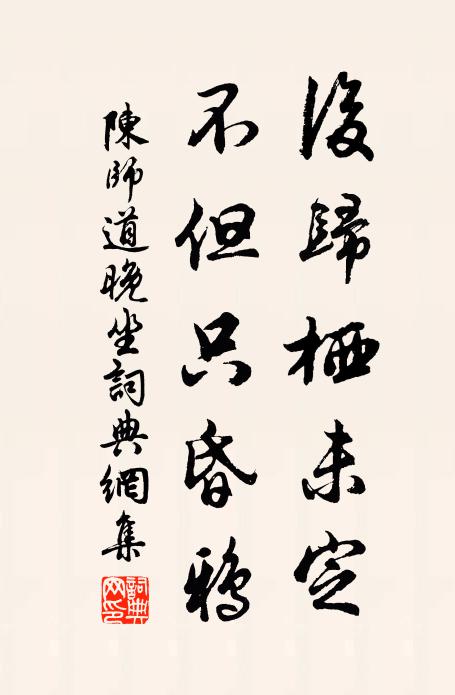 後歸栖未定
不但只昏鴉
陳師道晚坐詞典網集
詞典網印